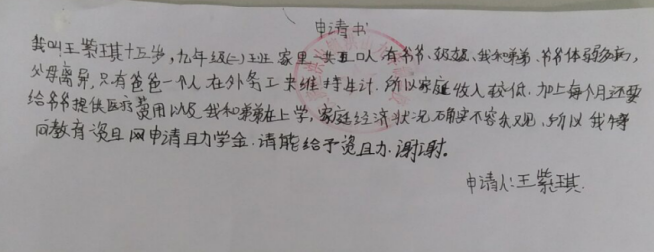 申请书
我叫王紫琪十五岁,九年级(二)班 家里一共五口人 有爷爷、奶奶、我和弟弟.爷爷体弱多病,
父母离异,只有爸爸一个人在外务工来维持生计.所以家庭收入较低.加上每个月还要
给爷爷提供医疗费用以及我和弟弟在上学,家庭经济状况确实不容乐观.所以我
向教育资助网申请助学金.请能给予资助.谢谢.
申请人:王紫琪.